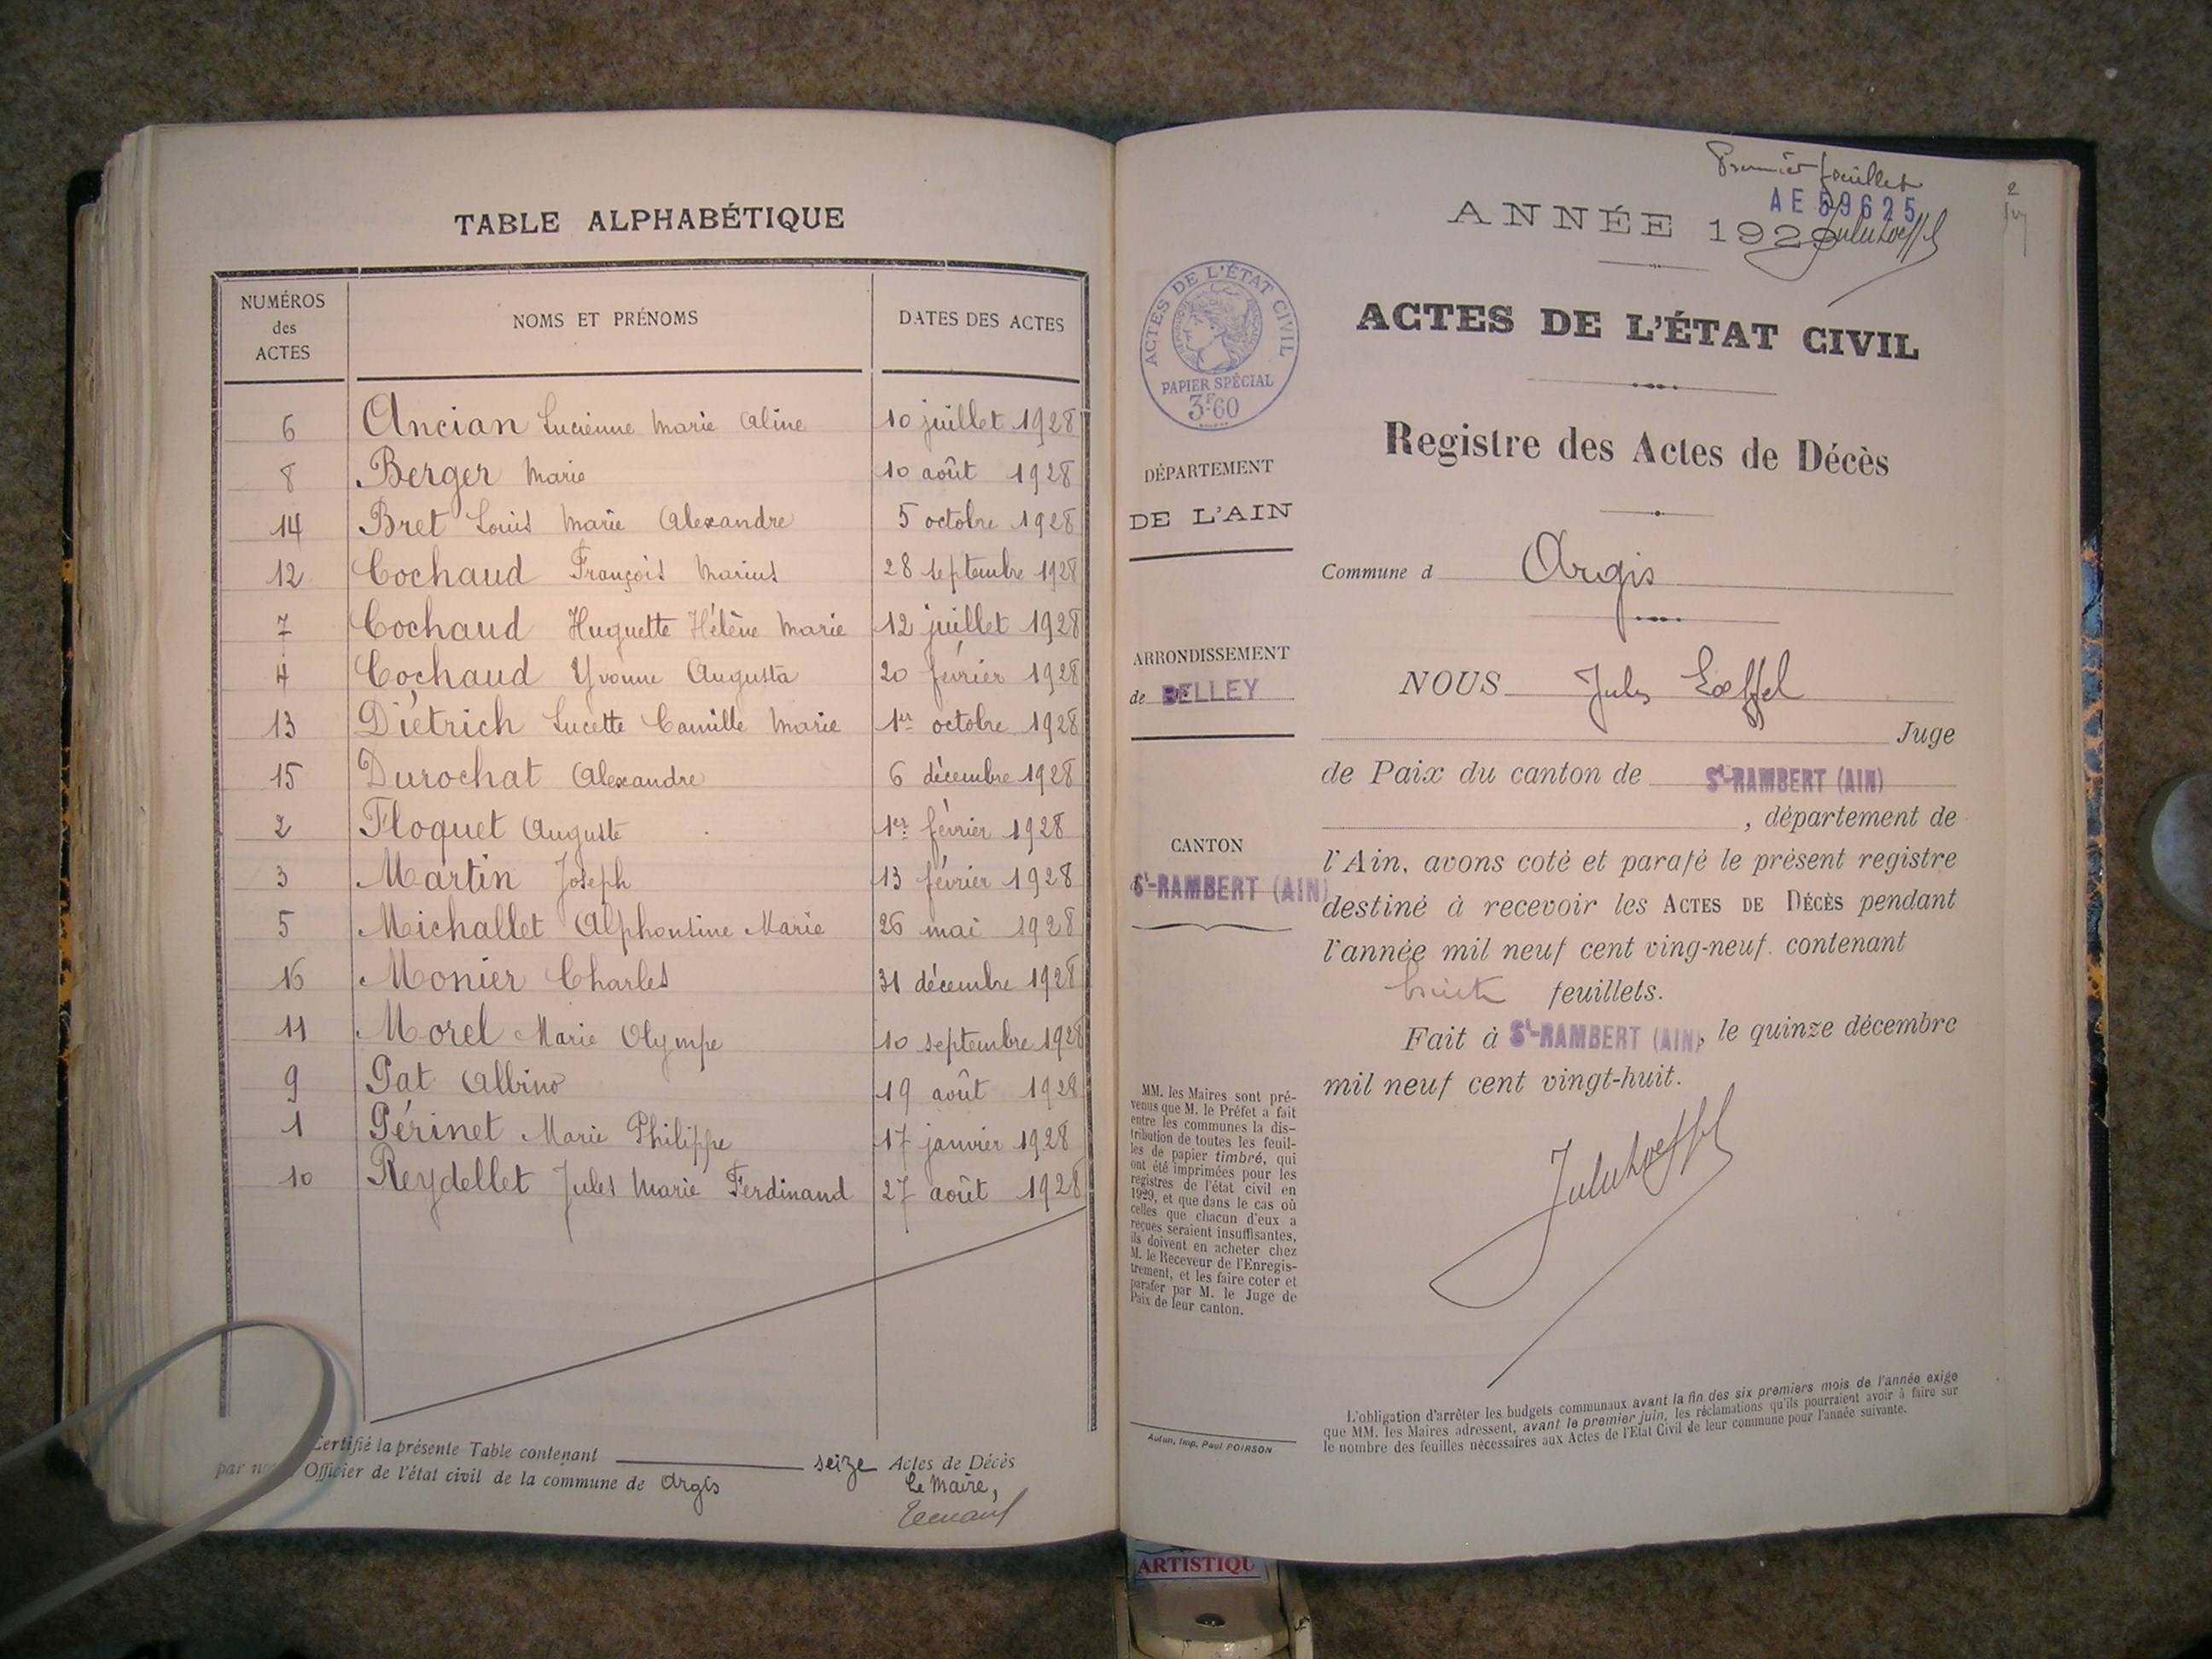 TABLE ALPHABÉTIQUE
NUMÉROS des ACTES NOMS ET PRÉNOMS DATES DES ACTES
6 Ancian Lucienne Marie Aline 10 juillet 1928
8 Berger Marie 10 août 1928
14 Bret Louis Marie Alexandre 5 octobre 1928
12 Cochaud François Marius 28 septembre 1928
7 Cochaud Huguette Hélène Marie 12 juillet 1928
4 Cochaud Yvonne Augusta 20 février 1928
13 Diétrich Lucette Camille Marie 1er octobre 1928
15 Durochat Alexandre 6 décembre 1928
2 Floquet Auguste 1er février 1928
3 Martin Joseph 13 février 1928
5 Michallet Alphonsine Marie 26 mai 1928
16 Monier Charles 31 décembre 1928
11 Morel Marie Olympe 10 septembre 1928
9 Pat Albino 19 août 1928
1 Périnet Marie Philippe 17 janvier 1928
10 Reydellet Jules Marie Ferdinand 27 août 1928
Certifié la présente Table contenant seize Actes de Décès
par nous Officier de l'état civil de la commune de Argis
Le Maire,
Premier feuillet
AE 59625
ANNÉE 1929
ACTES DE L'ÉTAT CIVIL
PAPIER SPÉCIAL
3F.60
ACTES DE L'ÉTAT CIVIL
Registre des Actes de Décès
DÉPARTEMENT
DE L'AIN
ARRONDISSEMENT
de BELLEY
CANTON
St-RAMBERT (AIN)
MM. les Maires sont pré-
venus que M. le Préfet a fait
entre les communes la dis-
tribution de toutes les feuil-
les de papier timbré, qui
ont été imprimées pour les
registres de l'état civil en
1929, et que dans le cas où
celles que chacun d'eux a
reçues seraient insuffisantes,
ils doivent en acheter chez
M. le Receveur de l'Enregis-
trement, et les faire coter et
parafer par M. le Juge de
Paix de leur canton.
Autun, Imp. Paul POIRSON
Commune d Argis
NOUS Jules Loeffel
Juge
de Paix du canton de St-RAMBERT (AIN)
, département de
l'Ain, avons coté et parafé le présent registre
destiné à recevoir les ACTES DE DÉCÈS pendant
l'année mil neuf cent ving-neuf. contenant
huit feuillets.
Fait à St-RAMBERT (AIN), le quinze décembre
mil neuf cent vingt-huit.
L'obligation d'arrêter les budgets communaux avant la fin des six premiers mois de l'année exige
que MM. les Maires adressent, avant le premier juin, les réclamations qu'ils pourraient avoir à faire sur
le nombre des feuilles nécessaires aux Actes de l'Etat Civil de leur commune pour l'année suivante.
ARTISTIQU